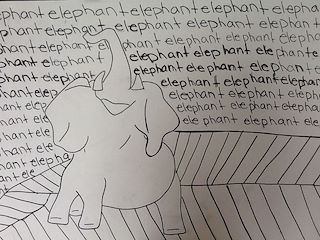 phant elephant elephant elephant elephant
elephant elephant elephant elephant
elephant elephant elephant ele phante
phant elephant elephant elephant
elephant elephant elephant elephant
elephant elephant elephant
phant ele elephant elephant elephant
phant ele elephant elephant ele
phant ele
ant ele
elepha